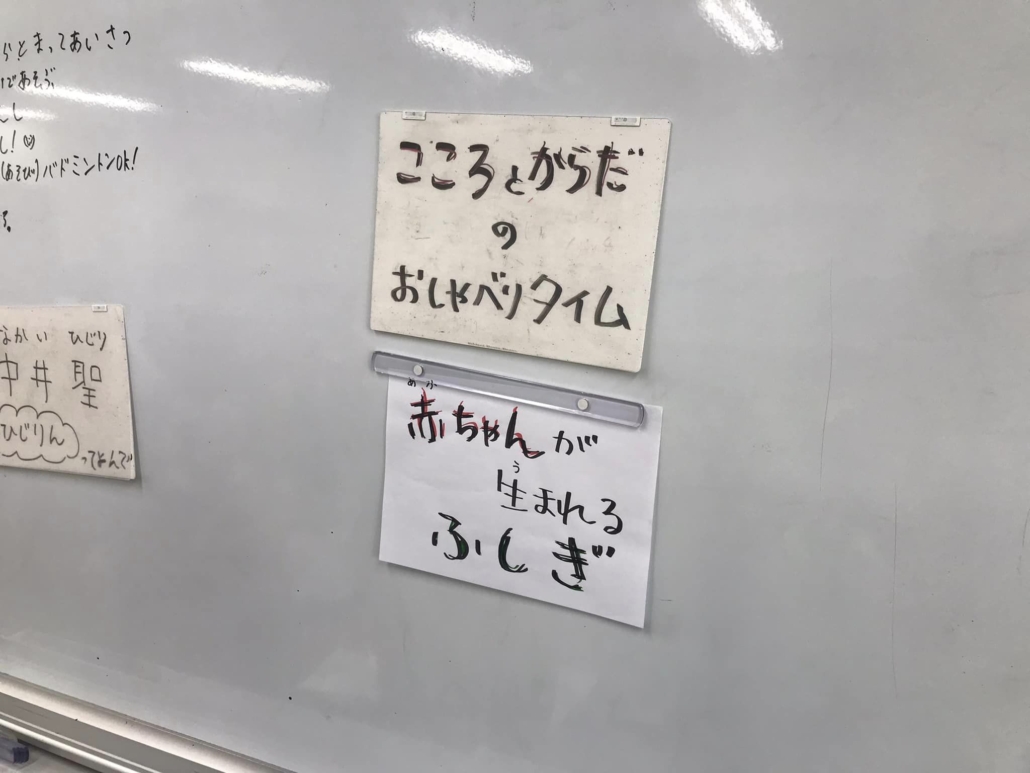 らとまってあいさつ
であそぶ
んし
し!
(あそび)バドミントンOK!
る。
こころとからだ
の
おしゃべりタイム
なかい ひじり
中井 聖
ひじりん
ってよんで
あか
赤ちゃんが
う
生まれる
ふしぎ